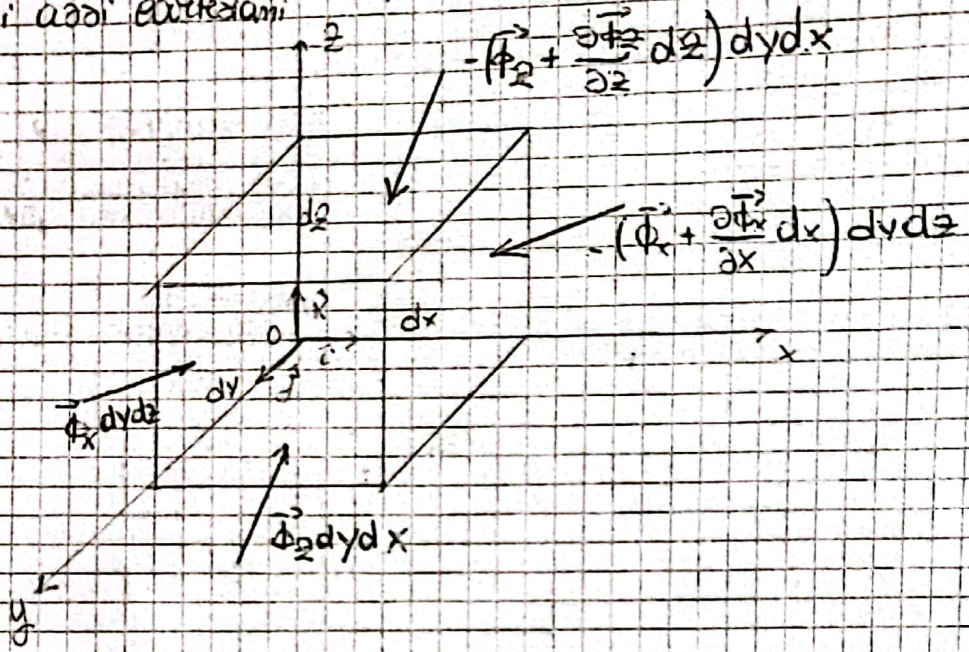 i assi cartesiani
z
-(Φ⃗z + ∂Φ⃗z/∂z dz) dydx
dz
-(Φ⃗x + ∂Φ⃗x/∂x dx) dydz
k⃗
dx
O
i⃗
x
dy
j⃗
Φ⃗x dydz
Φ⃗z dydx
y